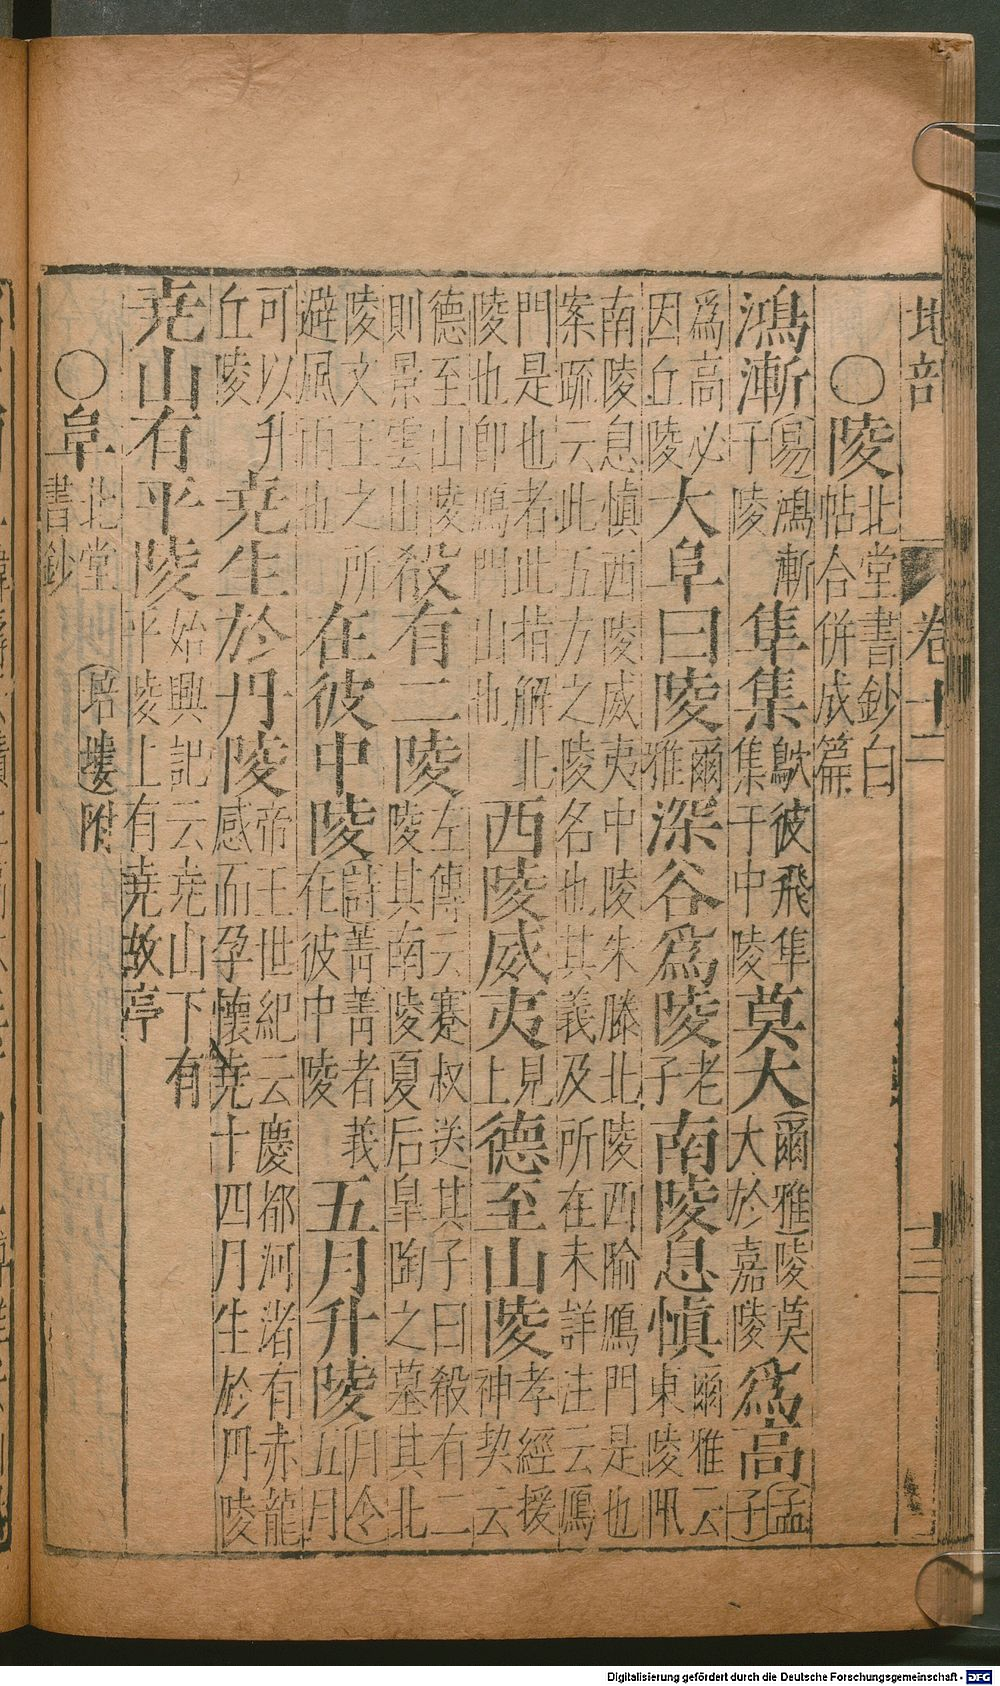 地部
卷十
○陵北堂書鈔白帖合併成篇
鴻漸易鴻漸于陵隼集鴥彼飛隼集于中陵莫大爾雅陵莫大於嘉陵爲高孟子
爲高必因丘陵大阜曰陵爾雅深谷爲陵老子南陵息愼爾雅云東陵阠
南陵息愼西陵威夷中陵朱滕北陵西隃鴈門是也案䟽云此五方之陵名也其義及所在未詳注云鴈
門是也者此指解北陵也卽鴈門山也西陵威夷見上德至山陵孝經援神契云
德至山陵則景雲山殽有二陵左傳云蹇叔送其子曰殽有二陵其南陵夏后皐陶之墓其北
陵文王之所避風雨也在彼中陵詩菁菁者義在彼中陵五月升陵月令五月
可以升丘陵堯生於丹陵帝王世紀云慶都河渚有赤龍感而孕懷堯十四月生於丹陵
堯山有平陵始興記云堯山下有平陵上有堯故亭
○阜北堂書鈔培塿附
Digitalisierung gefördert durch die Deutsche Forschungsgemeinschaft - DFG